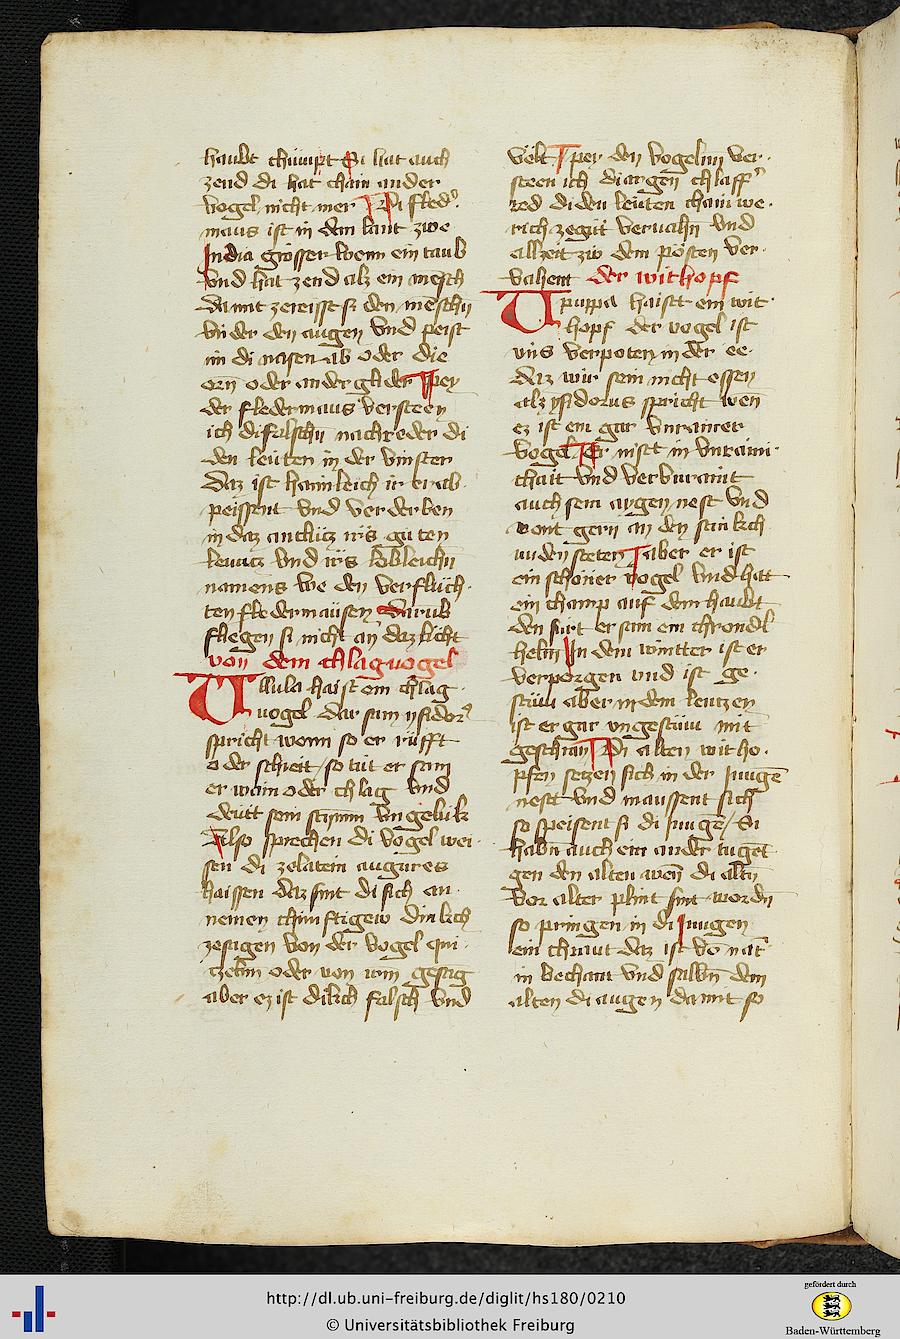 haubt chumpt Si hat auch
zend di hat chain ander
vogel nicht mer Di fled
maus ist in dem lant zwe
India grosser wenn ein taub
vnd hat zend alz ein mesch
da mit zereisset si den meschn
vnder den augen vnd peist
im di nasen ab oder die
orn oder ander glider Pey
der fledermaus versteen
ich di falschn nachreder di
den leuten in der vinster
daz ist haimleich ir er ab
peissent vnd verderben
in daz antlucz irs guten
leumtz vnd irs lobleichn
namens we den verfluch
ten fledermausen Darub
fliegen si nicht an daz licht
von dem chlagvogel
Ulula haist ein chlag
vogel dar sam ysidor
spricht wann so er rufft
oder schreit so tut er sam
er wain oder chlag vnd
deutt sein stymm vngeluk
Also sprechen di vogel wei
sen di ze latein augures
haissen daz sint di sich an
nemen chunftigew dinkch
ze sagen von der vogel qui
tzeln oder von irm gesag
aber ez ist dikch falsch vnd
velt Pey den vogeln ver
steen ich di argen chlaff
red di den leuten chain we
rich ze gut vervahn vnd
allzeit zw dem posten ver
vahent der withopf
Upuppa haist ein wit
hopf der vogel ist
vns verpoten in der ee
daz wir sein nicht essen
alz ysidorus spricht wen
ez ist ein gar vnrainer
vogel Er nist in vnraini
chait vnd verburaint
auch sein aygen nest vnd
wont gern an den stinkch
unden steten aber er ist
ein schoner vogel vnd hat
ein champ auf dem haubt
den furt er sam ein chrondl
helm In dem wintter ist er
verporgen vnd ist ge
stum aber in dem lentzen
ist er gar vngestum mit
geschray Di alten witho
pfen setzen sich in der Junge
nest vnd maussent sich
so speisent si di Junge Si
habn auch ein ander tuget
gen den alten wen di altn
vor alter plint sint wordn
so pringen in di Jungen
ein chraut daz ist vo nat
in bechant vnd salbn dem
alten di augen da mit so
http://dl.ub.uni-freiburg.de/diglit/hs180/0210
© Universitätsbibliothek Freiburg
gefördert durch
Baden-Württemberg